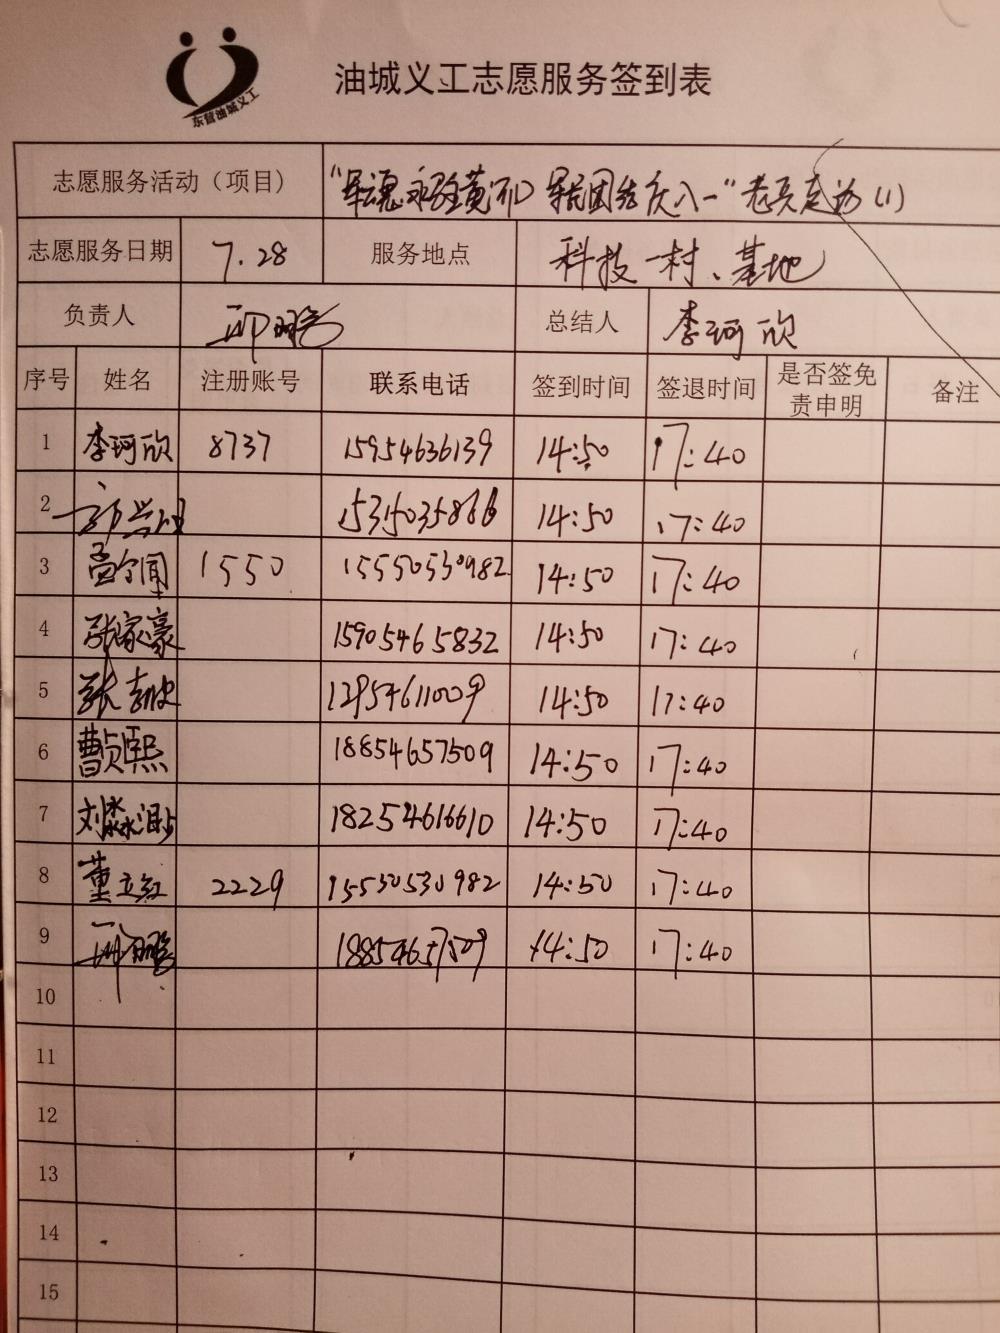 东营油城义工
油城义工志愿服务签到表
志愿服务活动（项目） "军魂永驻黄河口 军民团结庆八一"老兵走访(1)
志愿服务日期 7.28 服务地点 科技一村、基地
负责人 邱鹏 总结人 李珂欣
序号 姓名 注册账号 联系电话 签到时间 签退时间 是否签免责申明 备注
1 李珂欣 8737 15954636139 14:50 17:40
2 15315035866 14:50 17:40
3 孟令闻 1550 15550530982 14:50 17:40
4 张家豪 15905465832 14:50 17:40
5 张 14:50 17:40
6 曹贞熙 18854657509 14:50 17:40
7 刘淼 18254616610 14:50 17:40
8 董立红 2229 15550530982 14:50 17:40
9 18854657509 14:50 17:40
10
11
12
13
14
15